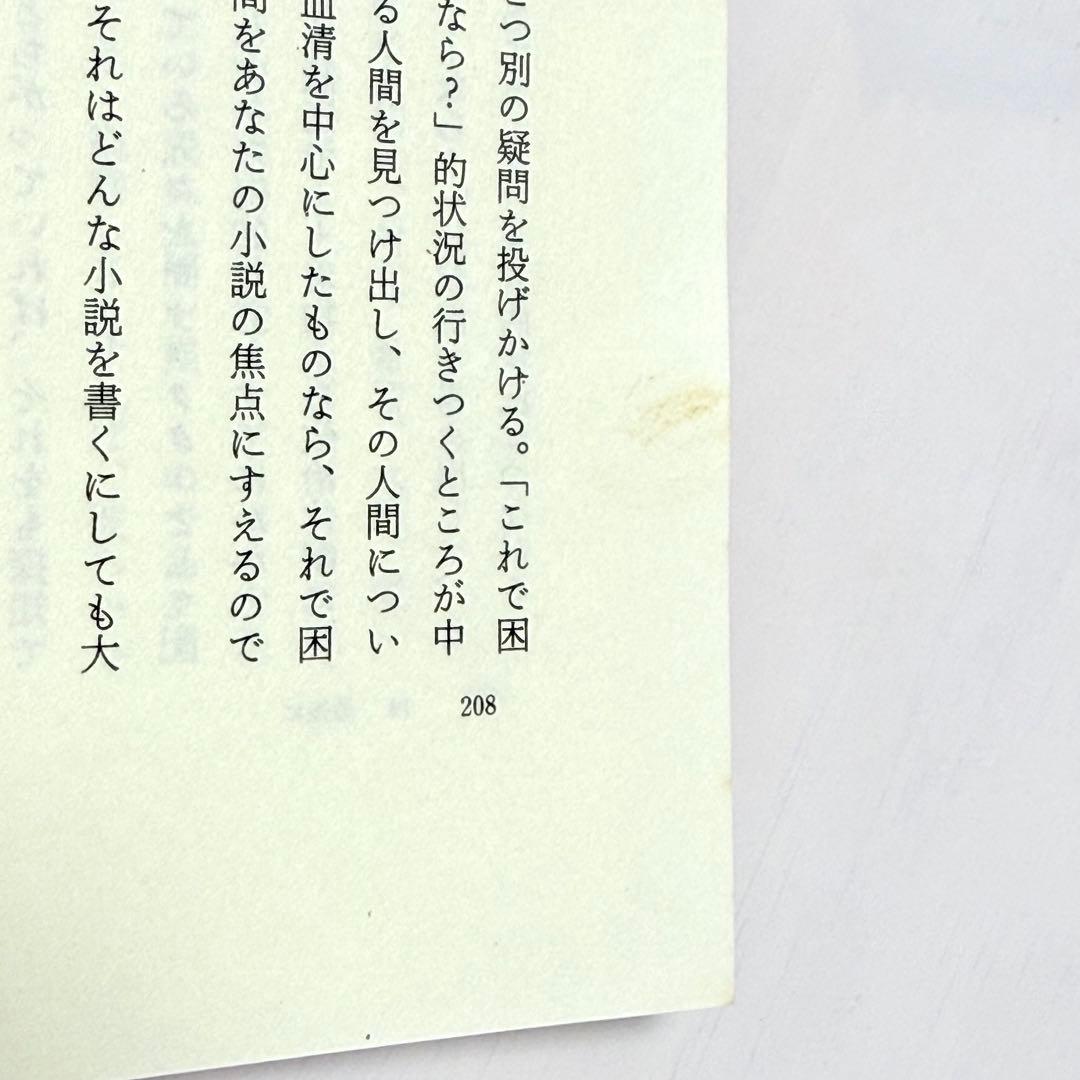 つ別の疑問を投げかける。「これで困
なら？」的状況の行きつくところが中
る人間を見つけ出し、その人間につい
血清を中心にしたものなら、それで困
間をあなたの小説の焦点にすえるので
それはどんな小説を書くにしても大
208